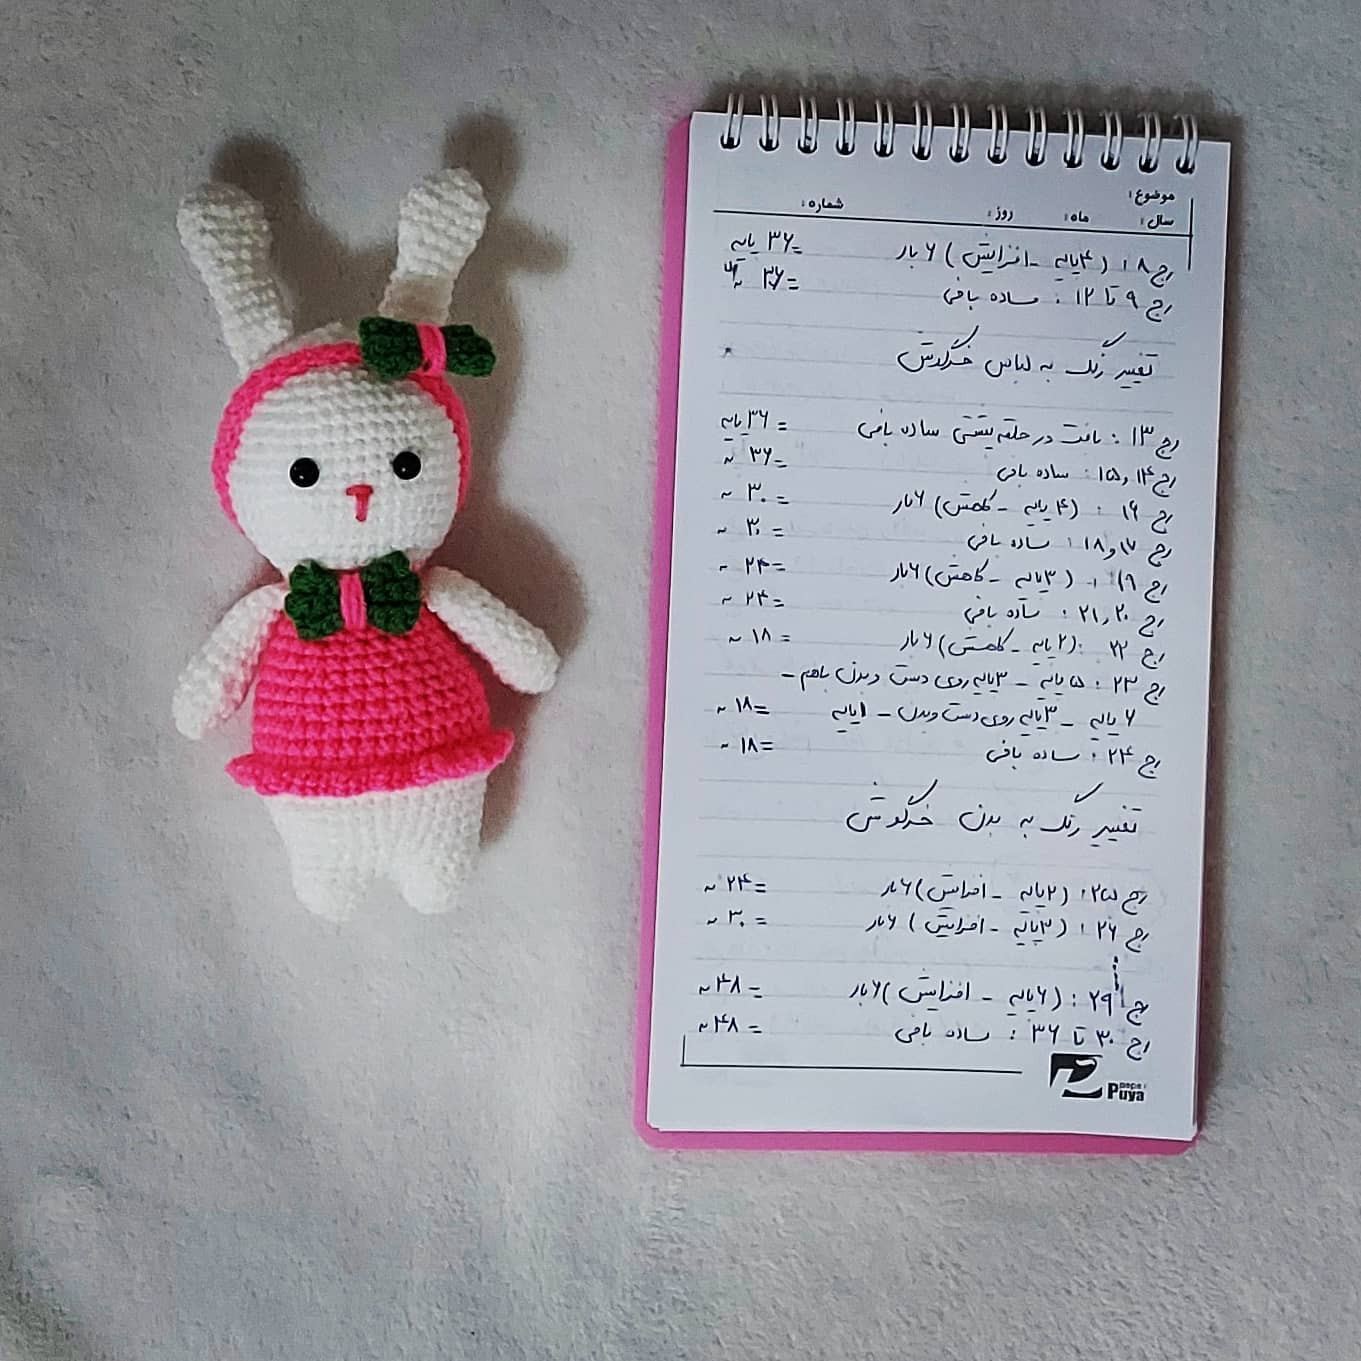 موضوع:
سال: ماه: روز: شماره:
رج ۸: (۴پایه - افزایش) ۶ بار =۳۶ پایه
رج ۹ تا ۱۲: ساده بافی =۳۶ ~
تغییر رنگ به لباس خرگوش
رج ۱۳: بافت در حلقه پشتی ساده بافی =۳۶پایه
رج ۱۴و۱۵: ساده بافی =۳۶ ~
رج ۱۶: (۴ پایه - کاهش) ۶بار =۳۰ ~
رج ۱۷و۱۸: ساده بافی =۳۰ ~
رج ۱۹: (۳پایه - کاهش) ۶بار =۲۴ ~
رج ۲۰و۲۱: ساده بافی =۲۴ ~
رج ۲۲: (۲ پایه - کاهش) ۶بار =۱۸ ~
رج ۲۳: ۵ پایه - ۳پایه روی دست و بدن باهم -
۶ پایه - ۳پایه روی دست و بدن - ۱پایه =۱۸ ~
رج ۲۴: ساده بافی =۱۸ ~
تغییر رنگ به بدن خرگوش
رج ۲۵: (۲پایه - افزایش) ۶بار =۲۴ ~
رج ۲۶: (۳پایه - افزایش) ۶بار =۳۰ ~
رج ۲۹: (۶پایه - افزایش) ۶بار =۴۸ ~
رج ۳۰ تا ۳۶: ساده بافی =۴۸ ~
papar
Puya